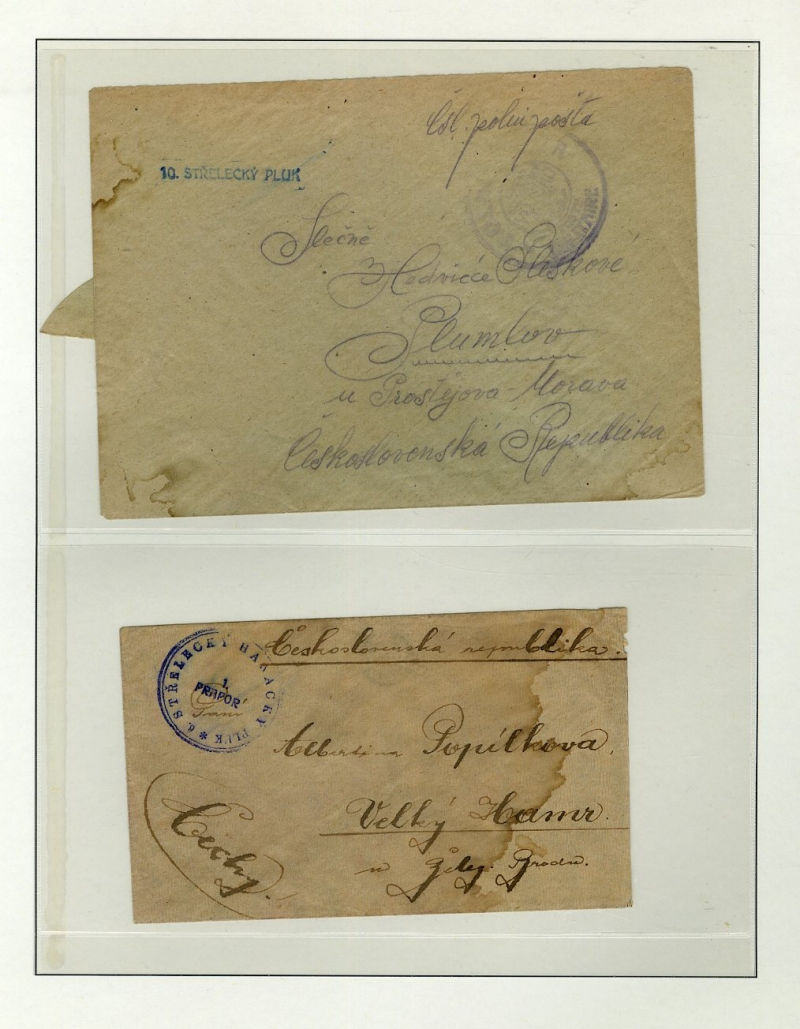 Čsl. polní pošta
10. STŘELECKÝ PLUK
Slečně
Hedvice Pliskové
Plumlov
u Prostějova - Morava
Československá Republika
Československá republika.
6. STŘELECKÝ HANÁCKÝ PLUK *
1.
PRAPOR
Paní
Albertina Popílkova,
Velký Hamr.
u Žele. Brodu.
Čechy.